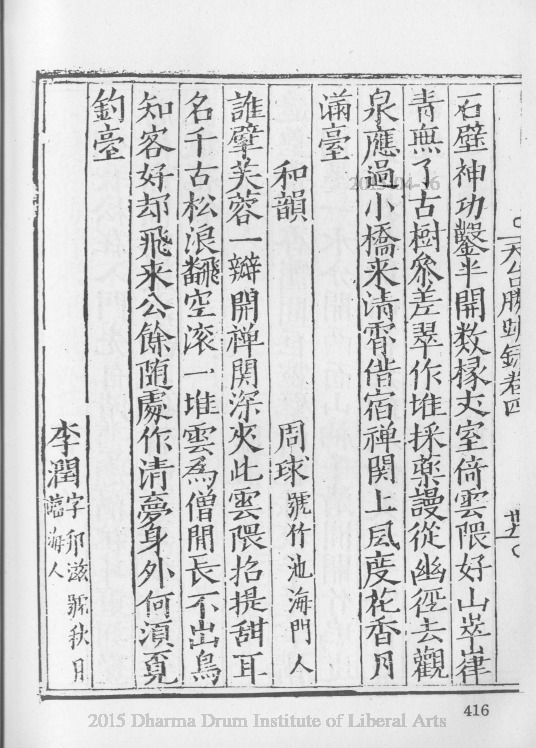 天台勝蹟録卷四
石壁神功鑿半開数椽丈室倚雲隈好山崒嵂
青無了古樹參差翠作堆採藥謾從幽徑去觀
泉應過小橋来清霄借宿禅関上風度花香月
滿臺
和韻 周球 號竹池海門人
誰擘芙蓉一瓣開禅関深夾此雲隈招提甜耳
名千古松浪飜空滚一堆雲為僧閒長不出鳥
知客好却飛来公餘随處作清夢身外何湏覓
釣臺
李潤 字邦滋號秋月
臨海人
416
2015 Dharma Drum Institute of Liberal Arts